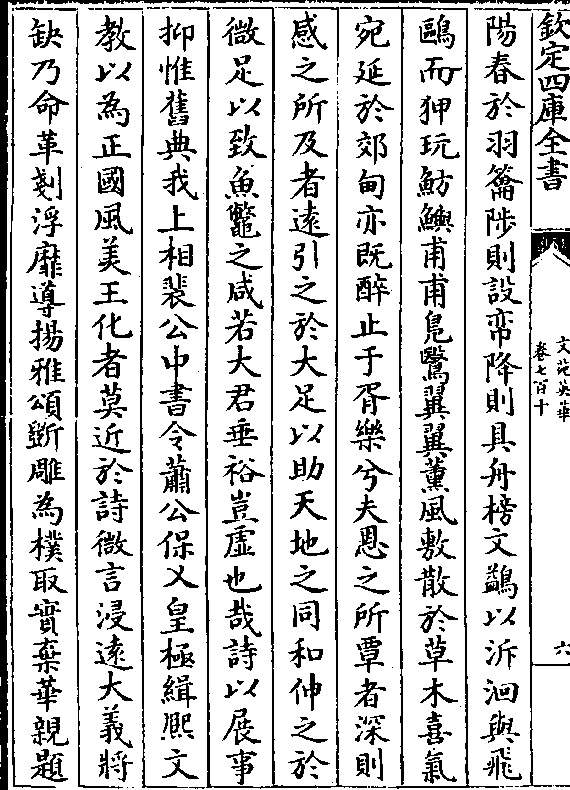 欽定四庫全書
文苑英華
卷七百十
六
陽春於羽籥陟則設帟降則具舟榜文鷁以泝洄與飛
鷗而狎玩魴鱮甫甫鳬鷖翼翼薰風敷散於草木喜氣
宛延於郊甸亦既醉止于胥樂兮夫恩之所覃者深則
感之所及者遠引之於大足以助天地之同和伸之於
微足以致魚鼈之咸若大君垂裕豈虛也哉詩以展事
抑惟舊典我上相裴公中書令蕭公保乂皇極緝熙文
教以為正國風美王化者莫近於詩微言浸遠大義將
缺乃命革剗浮靡導揚雅頌斵雕為樸取實棄華親題